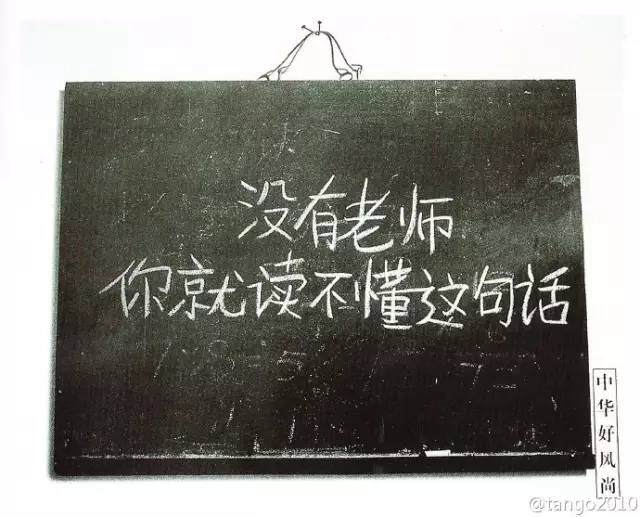 没有老师
你就读不懂这句话
中华好风尚
@tango2010